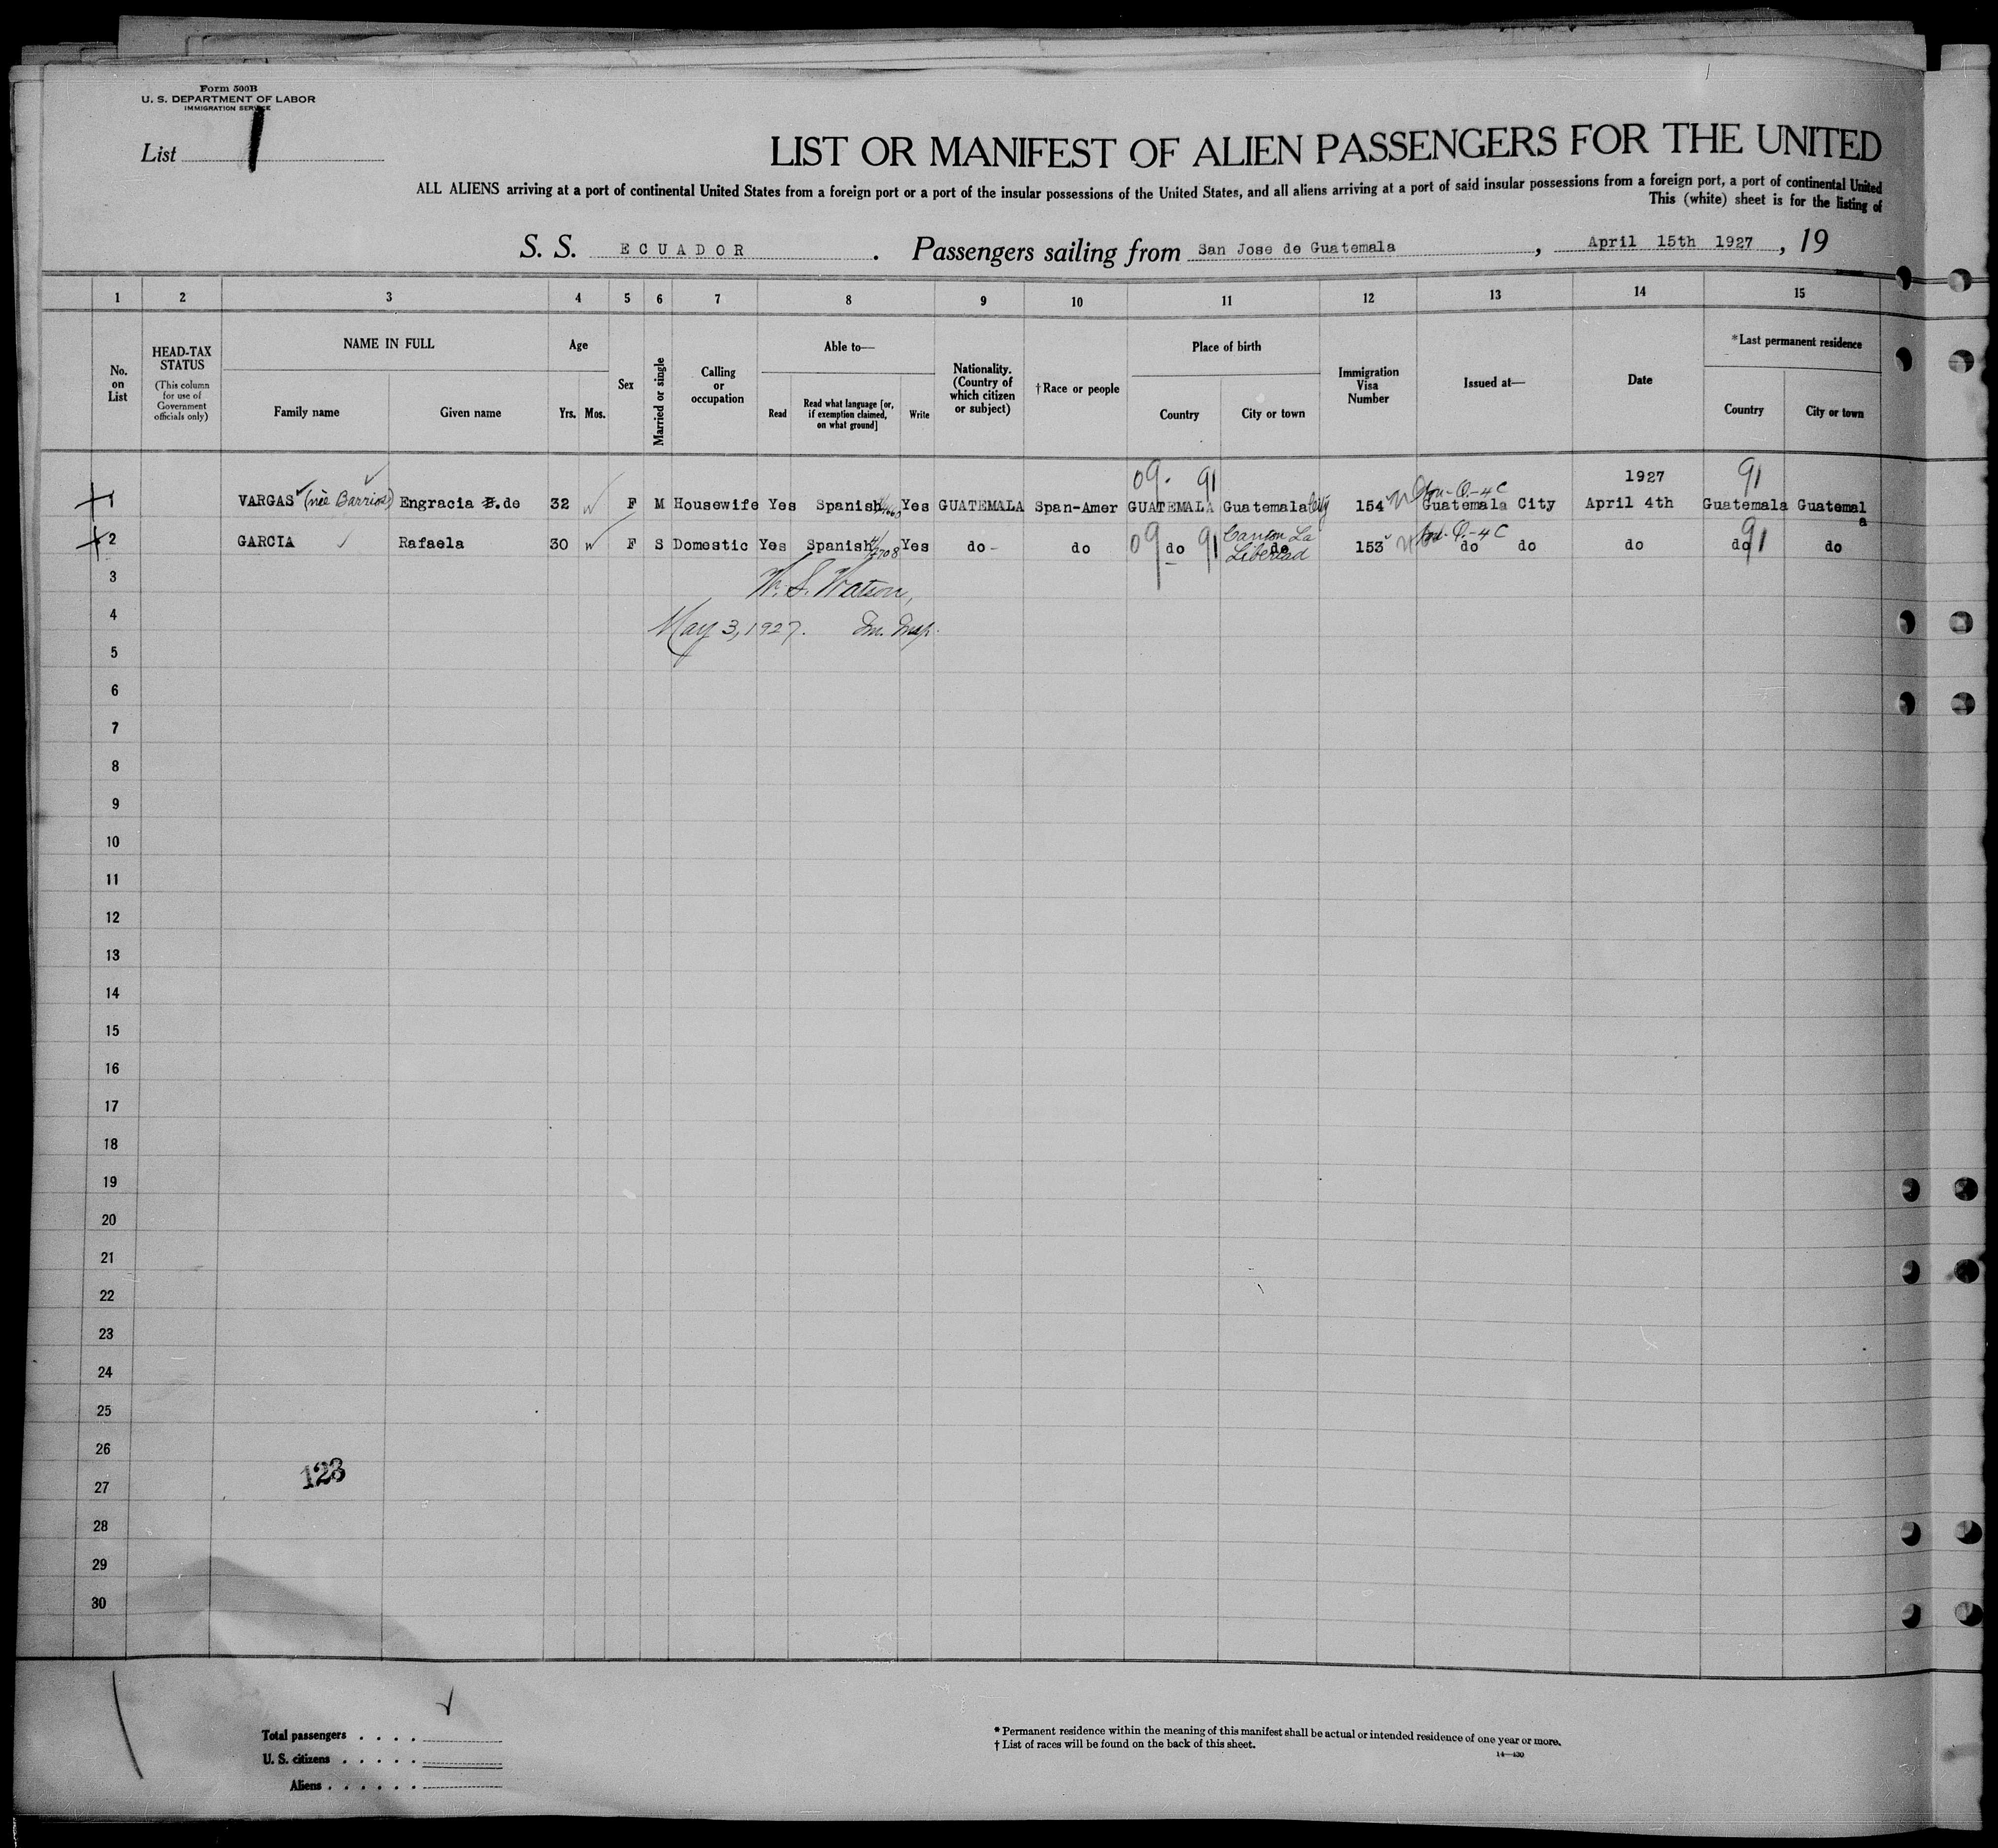 Form 500B
U. S. DEPARTMENT OF LABOR
IMMIGRATION SERVICE
List 1
LIST OR MANIFEST OF ALIEN PASSENGERS FOR THE UNITED
ALL ALIENS arriving at a port of continental United States from a foreign port or a port of the insular possessions of the United States, and all aliens arriving at a port of said insular possessions from a foreign port, a port of continental United
This (white) sheet is for the listing of
S. S. ECUADOR . Passengers sailing from San Jose de Guatemala , April 15th 1927 , 19
1 2 3 4 5 6 7 8 9 10 11 12 13 14 15
No. on List
HEAD-TAX STATUS
(This column for use of Government officials only)
NAME IN FULL
Family name Given name
Age
Yrs. Mos.
Sex
Married or single
Calling or occupation
Able to—
Read Read what language [or, if exemption claimed, on what ground] Write
Nationality. (Country of which citizen or subject)
†Race or people
Place of birth
Country City or town
Immigration Visa Number
Issued at—
Date
*Last permanent residence
Country City or town
09. 91 1927 91
1 VARGAS (née Barrios) Engracia B. de 32 F M Housewife Yes Spanish Yes GUATEMALA Span-Amer GUATEMALA Guatemala City 154 Non-Q.-4C Guatemala City April 4th Guatemala Guatemala
2 GARCIA Rafaela 30 F S Domestic Yes Spanish Yes do - do 09 do 91 do Canton La Libertad 153 Q.-4C do do do do 91 do
3
W. S. Watson,
4
May 3, 1927. Im. Insp.
5
6
7
8
9
10
11
12
13
14
15
16
17
18
19
20
21
22
23
24
25
26
123
27
28
29
30
Total passengers . . . .
U. S. citizens . . . . .
Aliens . . . . . .
* Permanent residence within the meaning of this manifest shall be actual or intended residence of one year or more.
† List of races will be found on the back of this sheet.
14—430